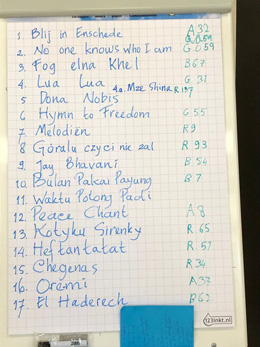 1 Blij in Enschede A 32
2. No one knows who I am G 059
3. Fog elna Khel B67
4. Lua Lua G 31
4a. Mze Shina R 197
5 Dona Nobis
6 Hymn to Freedom G 55
7 Melodien R 91
8 Góralu czyci nie żal R 93
9. Jay Bhavani B 54
10. Bulan Pakai Payung B 7
11. Waktu Potong Padi
12 Peace Chant A 8
13 Kotyku Sirenky R 65
14. Heftantatat R 57
15. Chegenas R 34
16. Oremi A 37
17. El Hadderech B 62
123inkt.nl